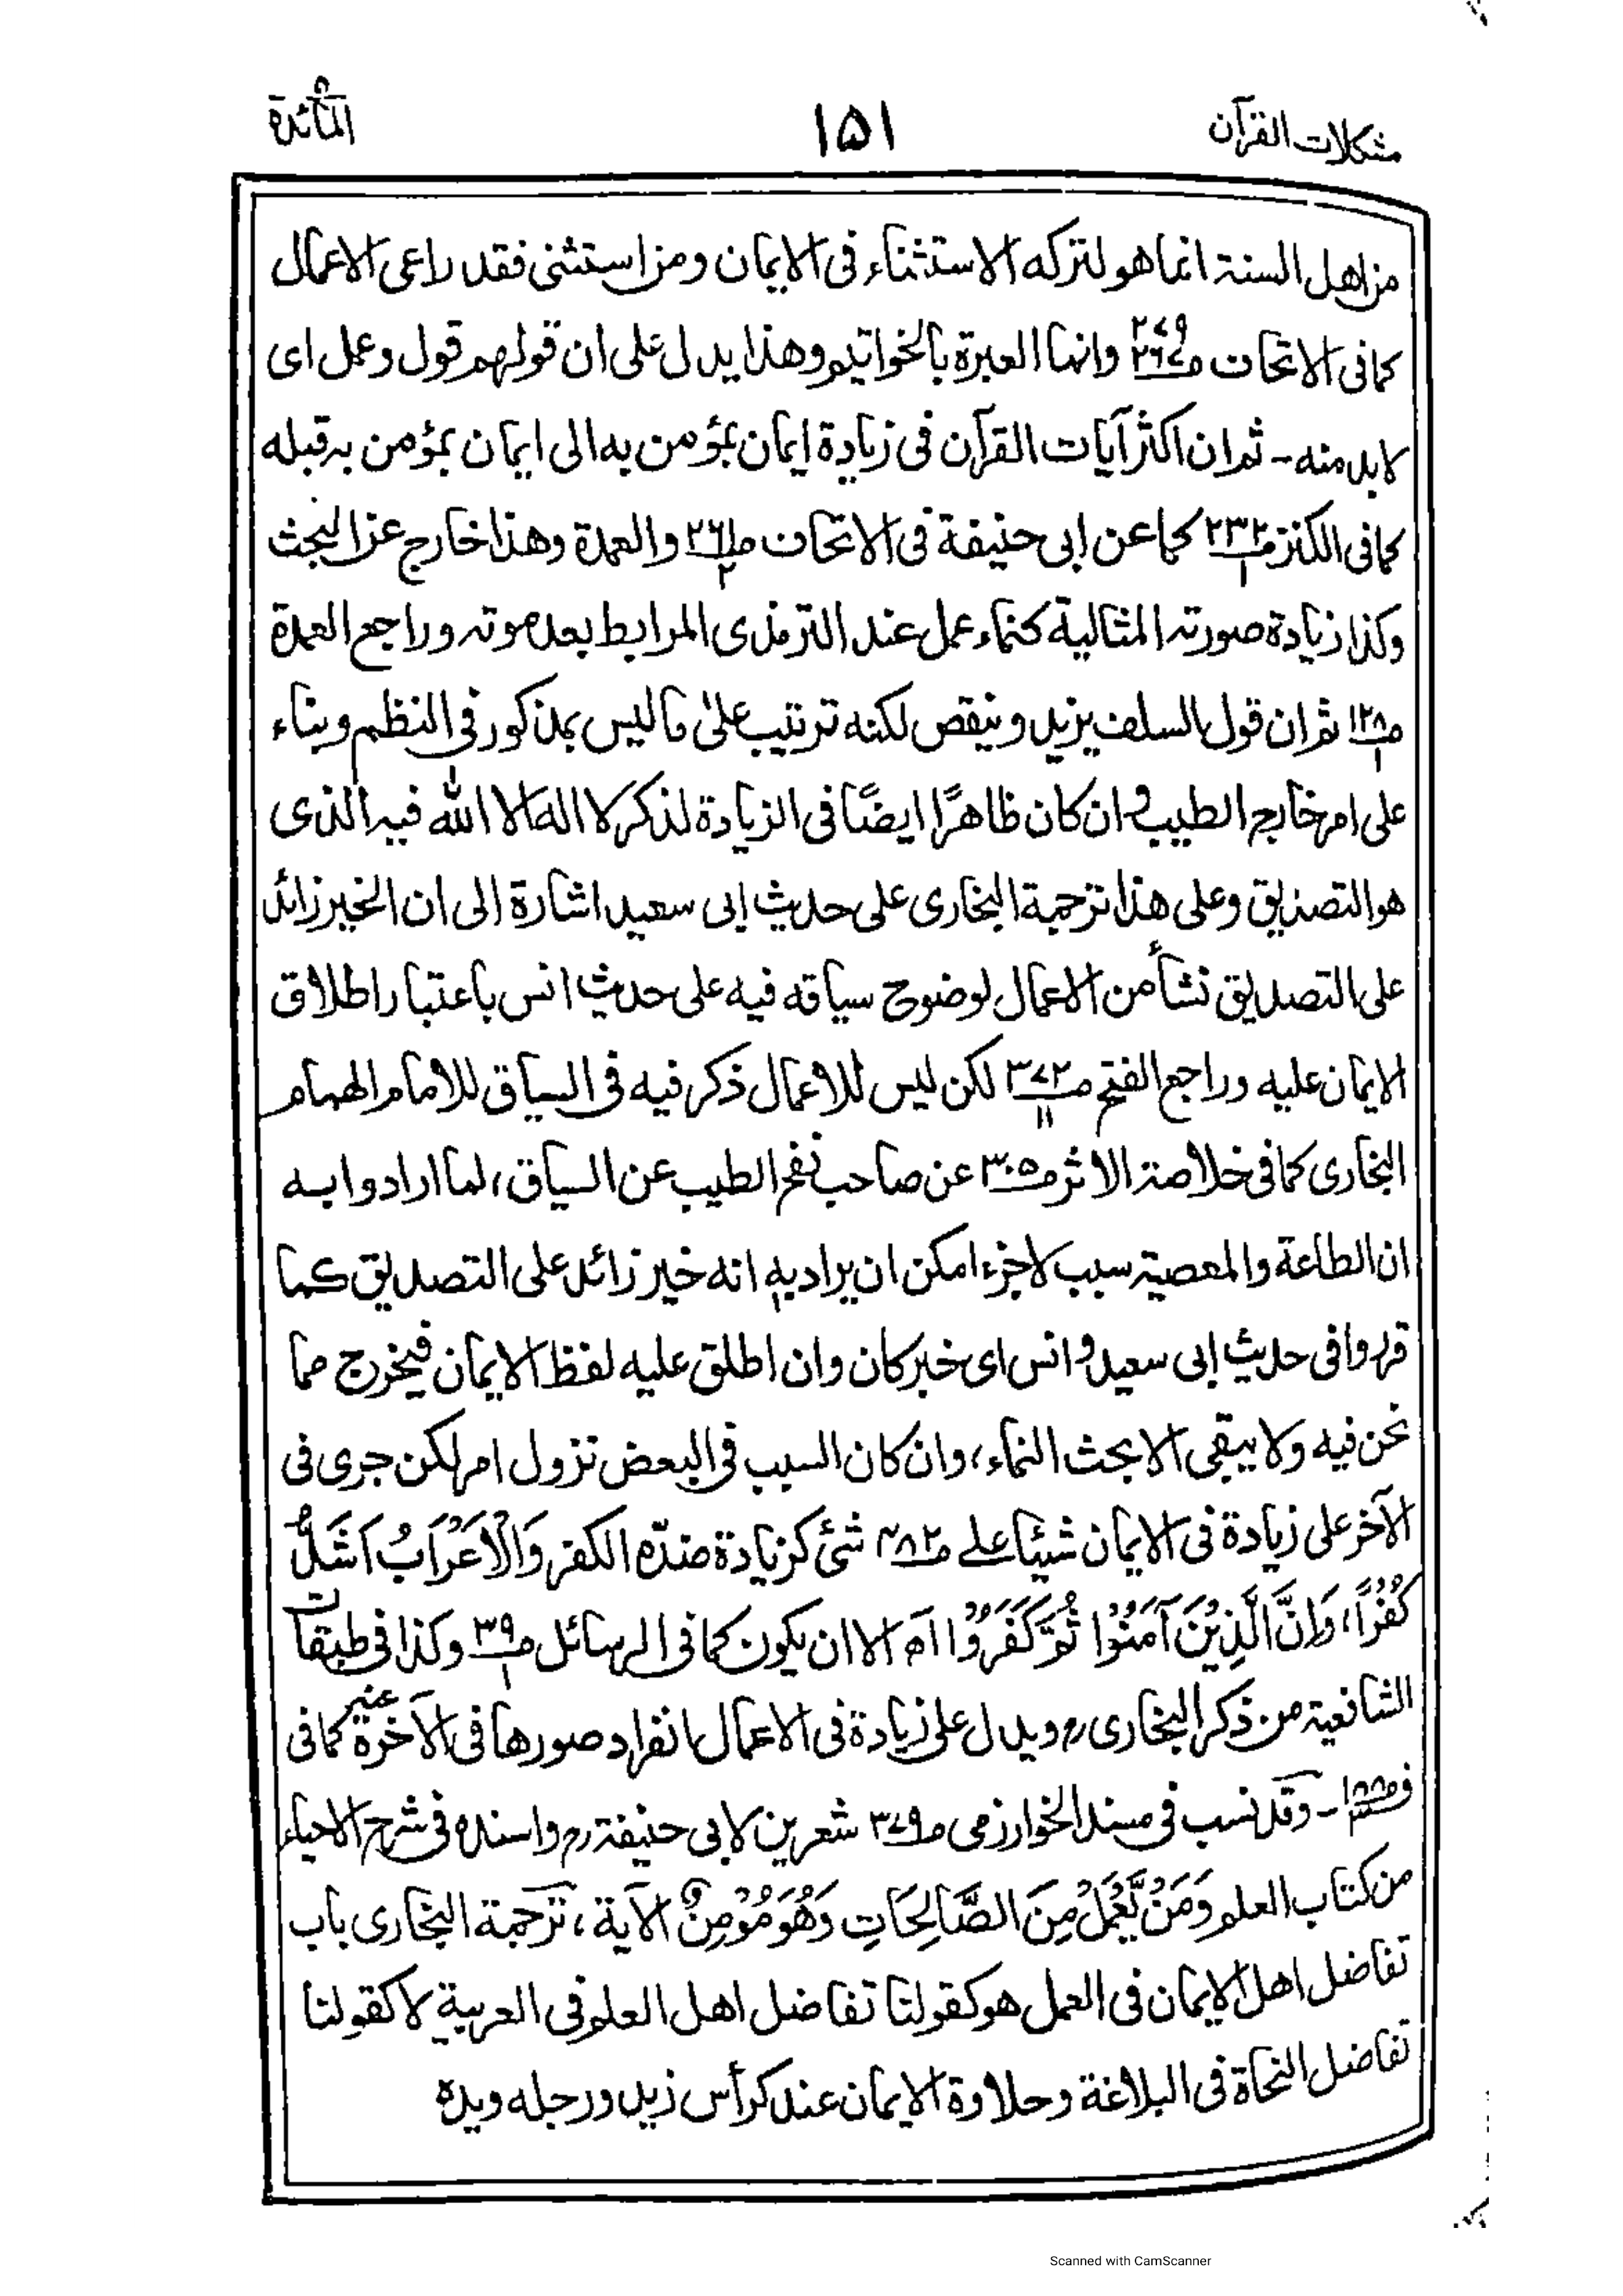 مشكلات القرآن ١٥١ المآئدة
من اهل السنة انما هو لتركه الاستثناء فى الايمان ومن استثنى فقد راعى الاعمال
كما فى الاتحاف ص٢٦٤ ٢٧٩ وانها العبرة بالخواتيم وهذا يدل على ان قولهم قول وعمل اى
لابد منه - ثم ان اكثر آيات القرآن فى زيادة ايمان بمؤمن به الى ايمان بمؤمن به قبله
كما فى الكنز ص٢٣٢/١ كما عن ابى حنيفة فى الاتحاف ص٢٦١/٢ والعمدة وهذا خارج عن البحث
وكذا زيادة صورته المثالية كنماء عمل عند الترمذى المرابط بعد موته وراجع العمدة
ص١٢٨/١ ثم ان قول السلف يزيد وينقص لكنه ترتيب على ما ليس بمذكور فى النظم وبناء
على امر خارج الطيب وان كان ظاهرًا ايضًا فى الزيادة لذكر لا اله الا الله فيه الذى
هو التصديق وعلى هذا ترجمة البخارى على حديث ابى سعيد اشارة الى ان الخير زائد
على التصديق نشأ من الاعمال لوضوح سياقه فيه على حديث انس باعتبار اطلاق
الايمان عليه وراجع الفتح ص٣٧٢/١١ لكن ليس للاعمال ذكر فيه فى السياق للامام الهمام
البخارى كما فى خلاصة الاثر ص٣٠٥ عن صاحب نفح الطيب عن السياق، لما ارادوا به
ان الطاعة والمعصية سبب لاجزء امكن ان يراد به انه خير زائد على التصديق كما
قرروا فى حديث ابى سعيد وانس اى خير كان وان اطلق عليه لفظ الايمان فيخرج مما
نحن فيه ولا يبقى الا بحث النماء، وان كان السبب فى البعض نزول امر لكن جرى فى
الآخر على زيادة فى الايمان شيئا على ص٢٨٢ شئ كزيادة ضدّه الكفر وَالْاَعْرَابُ اَشَدُّ
كُفْرًا، وَاِنَّ الَّذِيْنَ آمَنُوْا ثُمَّ كَفَرُوْا اه الا ان يكون كما فى الرسائل ص٣٩/١ وكذا فى طبقات
الشافعية من ذكر البخارى رح ويدل على زيادة فى الاعمال انفراد صورها فى الآخرة عنه كما فى
ف ص١٨٨ - وقد نسب فى مسند الخوارزمى ص٣٧٩ شعرين لابى حنيفة رح واسنده فى شرح الاحياء
من كتاب العلم وَمَنْ يَّعْمَلْ مِنَ الصَّالِحَاتِ وَهُوَ مُؤْمِنٌ الآية، ترجمة البخارى باب
تفاضل اهل الايمان فى العمل هو كقولنا تفاضل اهل العلم فى العربية لا كقولنا
تفاضل النحاة فى البلاغة وحلاوة الايمان عند كرأس زيد ورجله ويده
Scanned with CamScanner